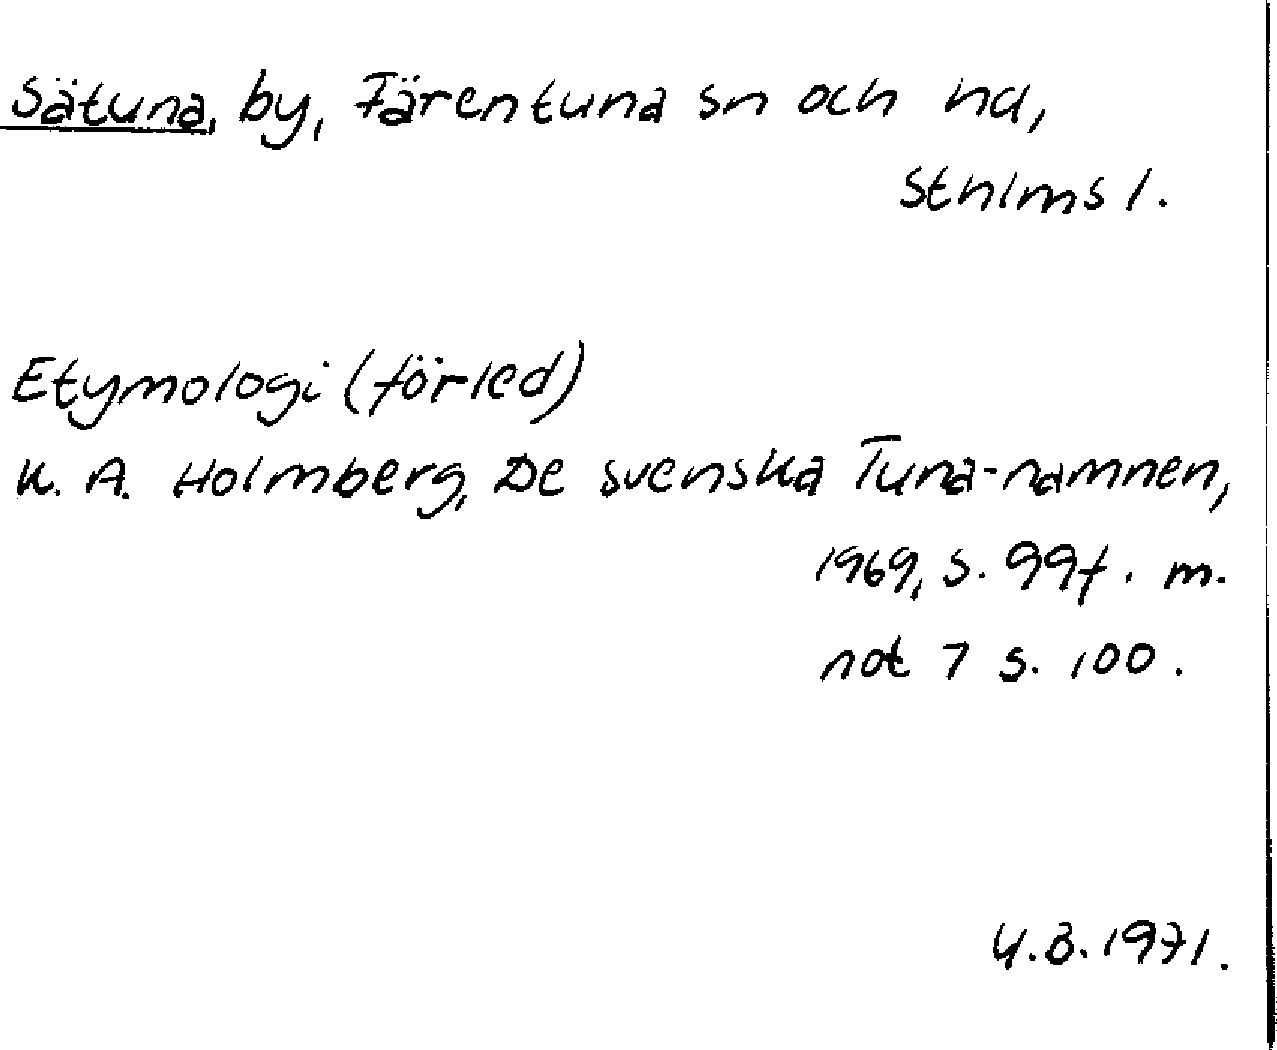 Sätuna, by, Färentuna sn och hd,
Sthlms l.
Etymologi (förled)
K. A. Holmberg, De svenska Tuna-namnen,
1969, s. 99f. m.
not 7 s. 100.
4.8.1971.